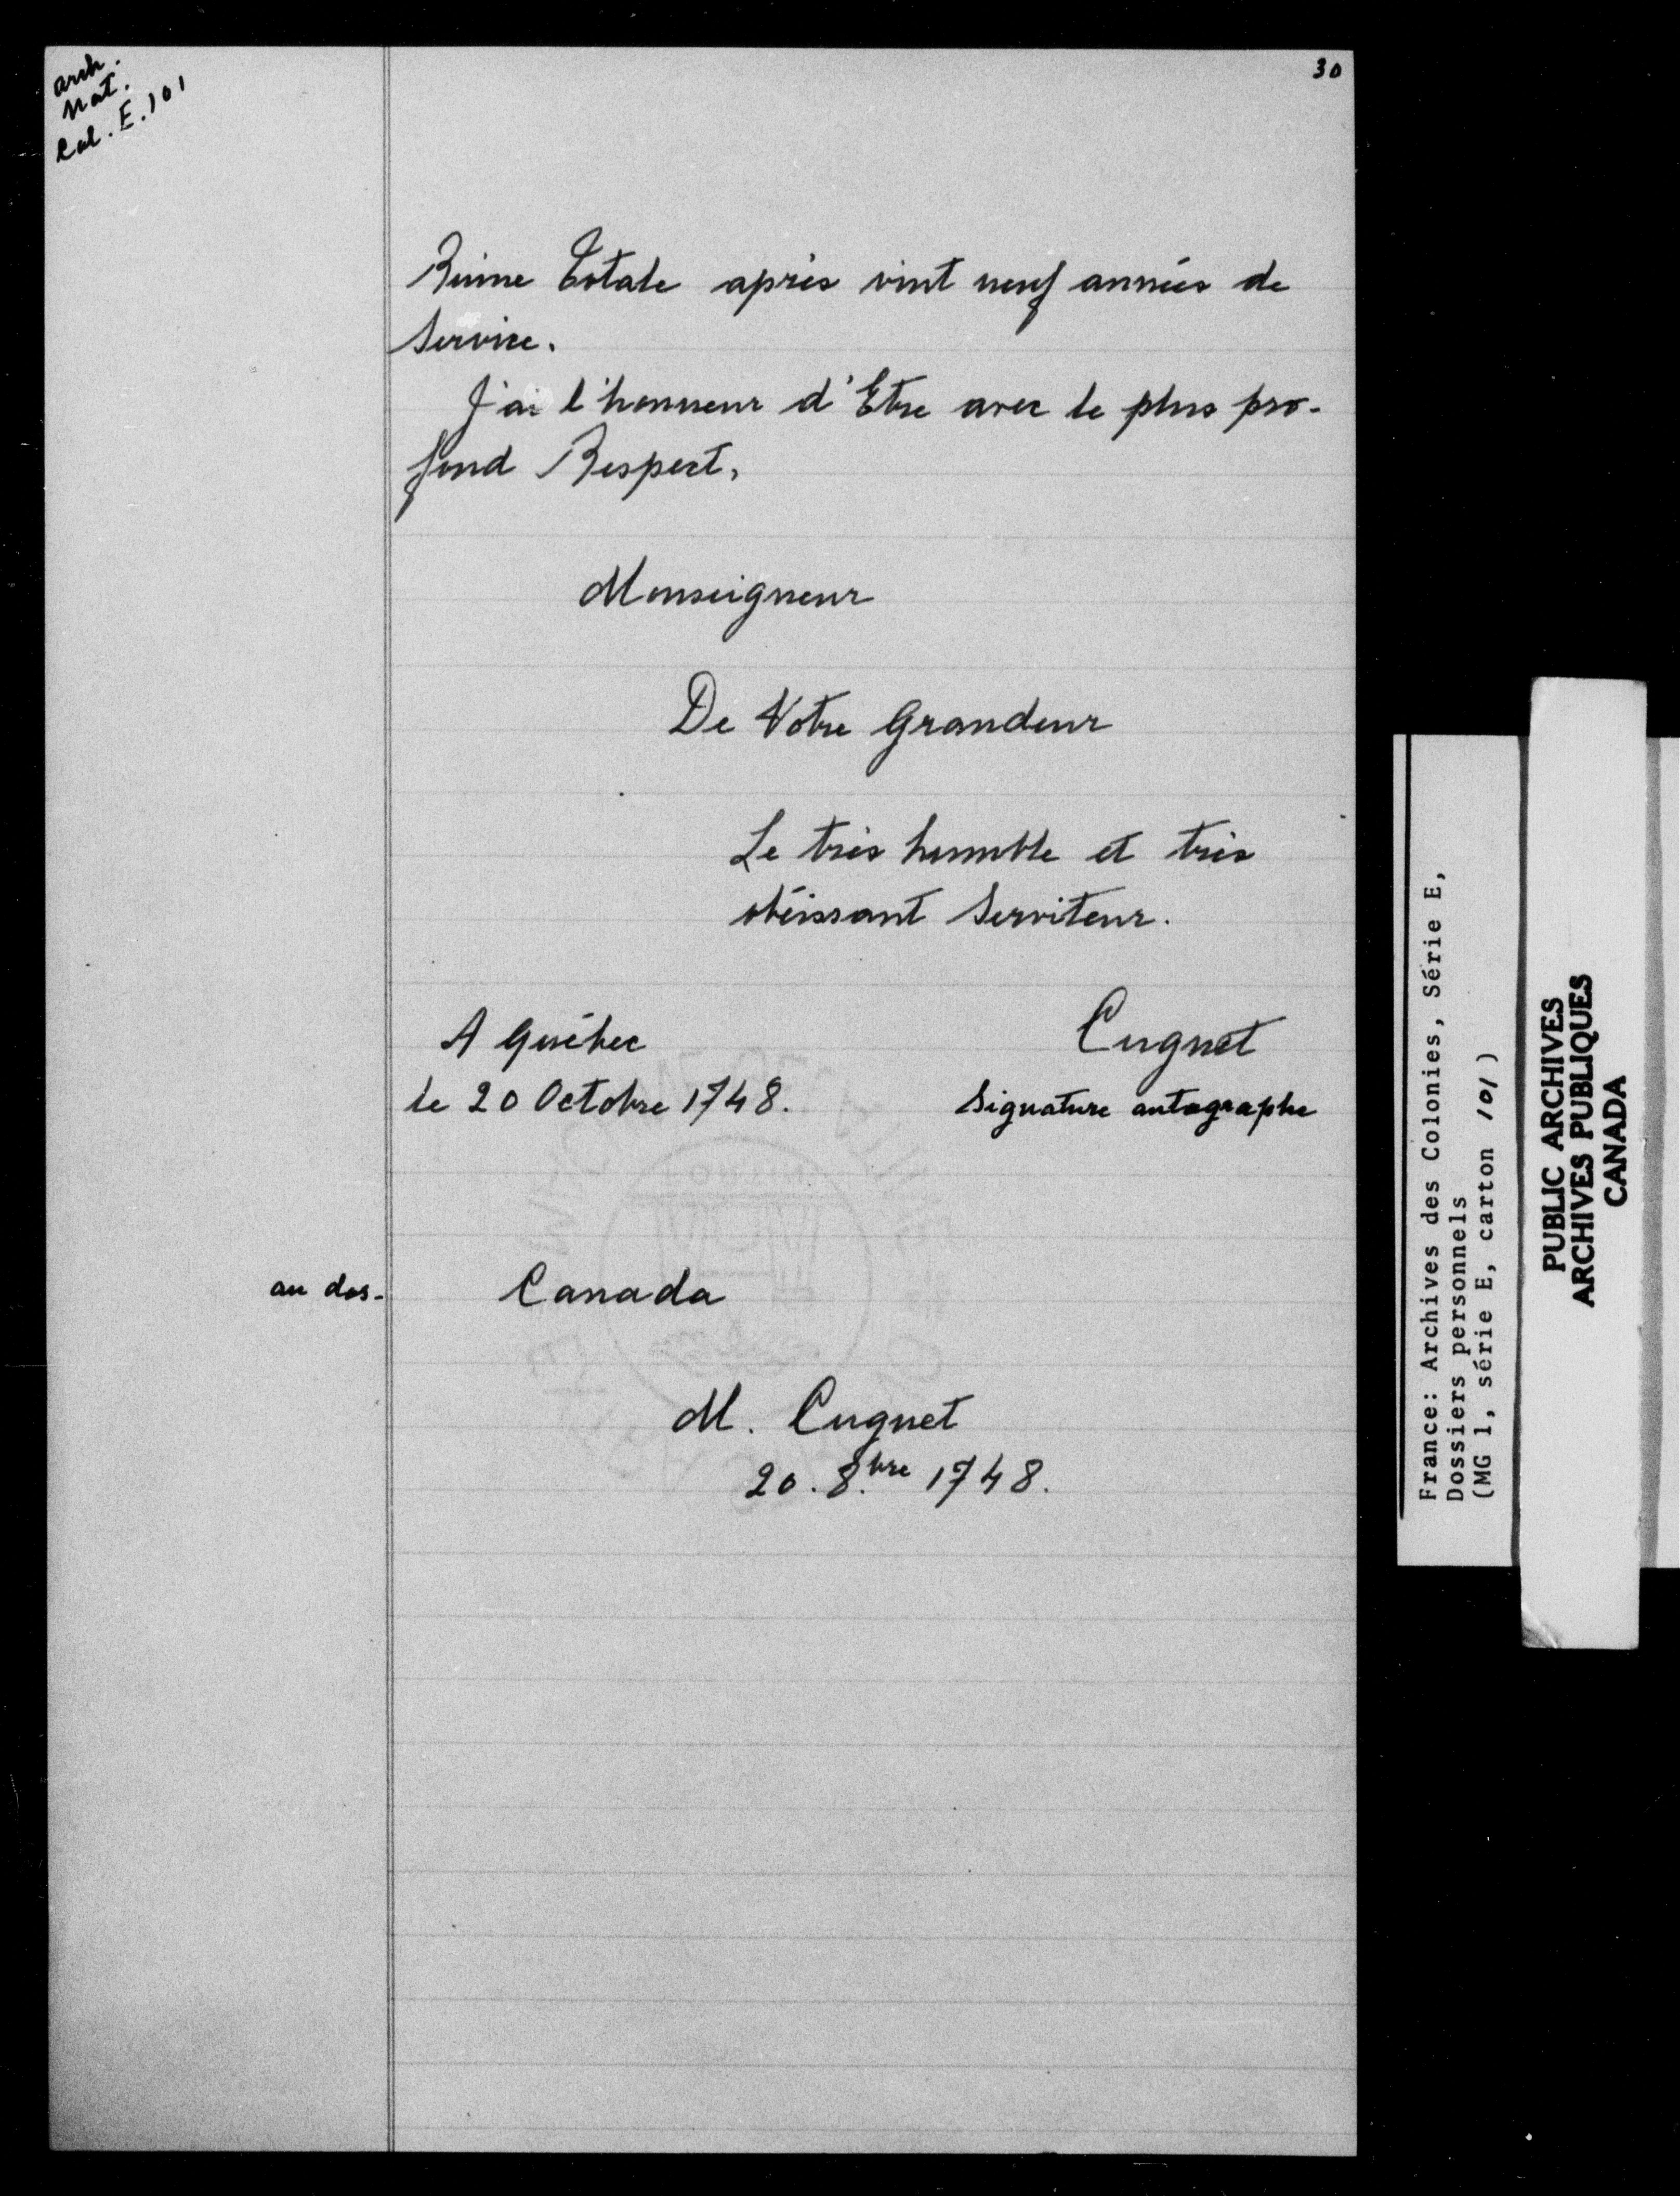 30
arch.
Nat.
Col. E. 101
Ruine Totale après vint neuf années de
Service.
J'ai l'honneur d'Etre avec le plus pro-
fond Respect,
Monseigneur
De Votre Grandeur
Le très humble et très
obéissant Serviteur.
A Québec
le 20 Octobre 1748.
Cugnet
Signature autographe
au dos-
Canada
M. Cugnet
20. 8.bre 1748.
France: Archives des Colonies, Série E,
Dossiers personnels
(MG 1, série E, carton 101)
PUBLIC ARCHIVES
ARCHIVES PUBLIQUES
CANADA